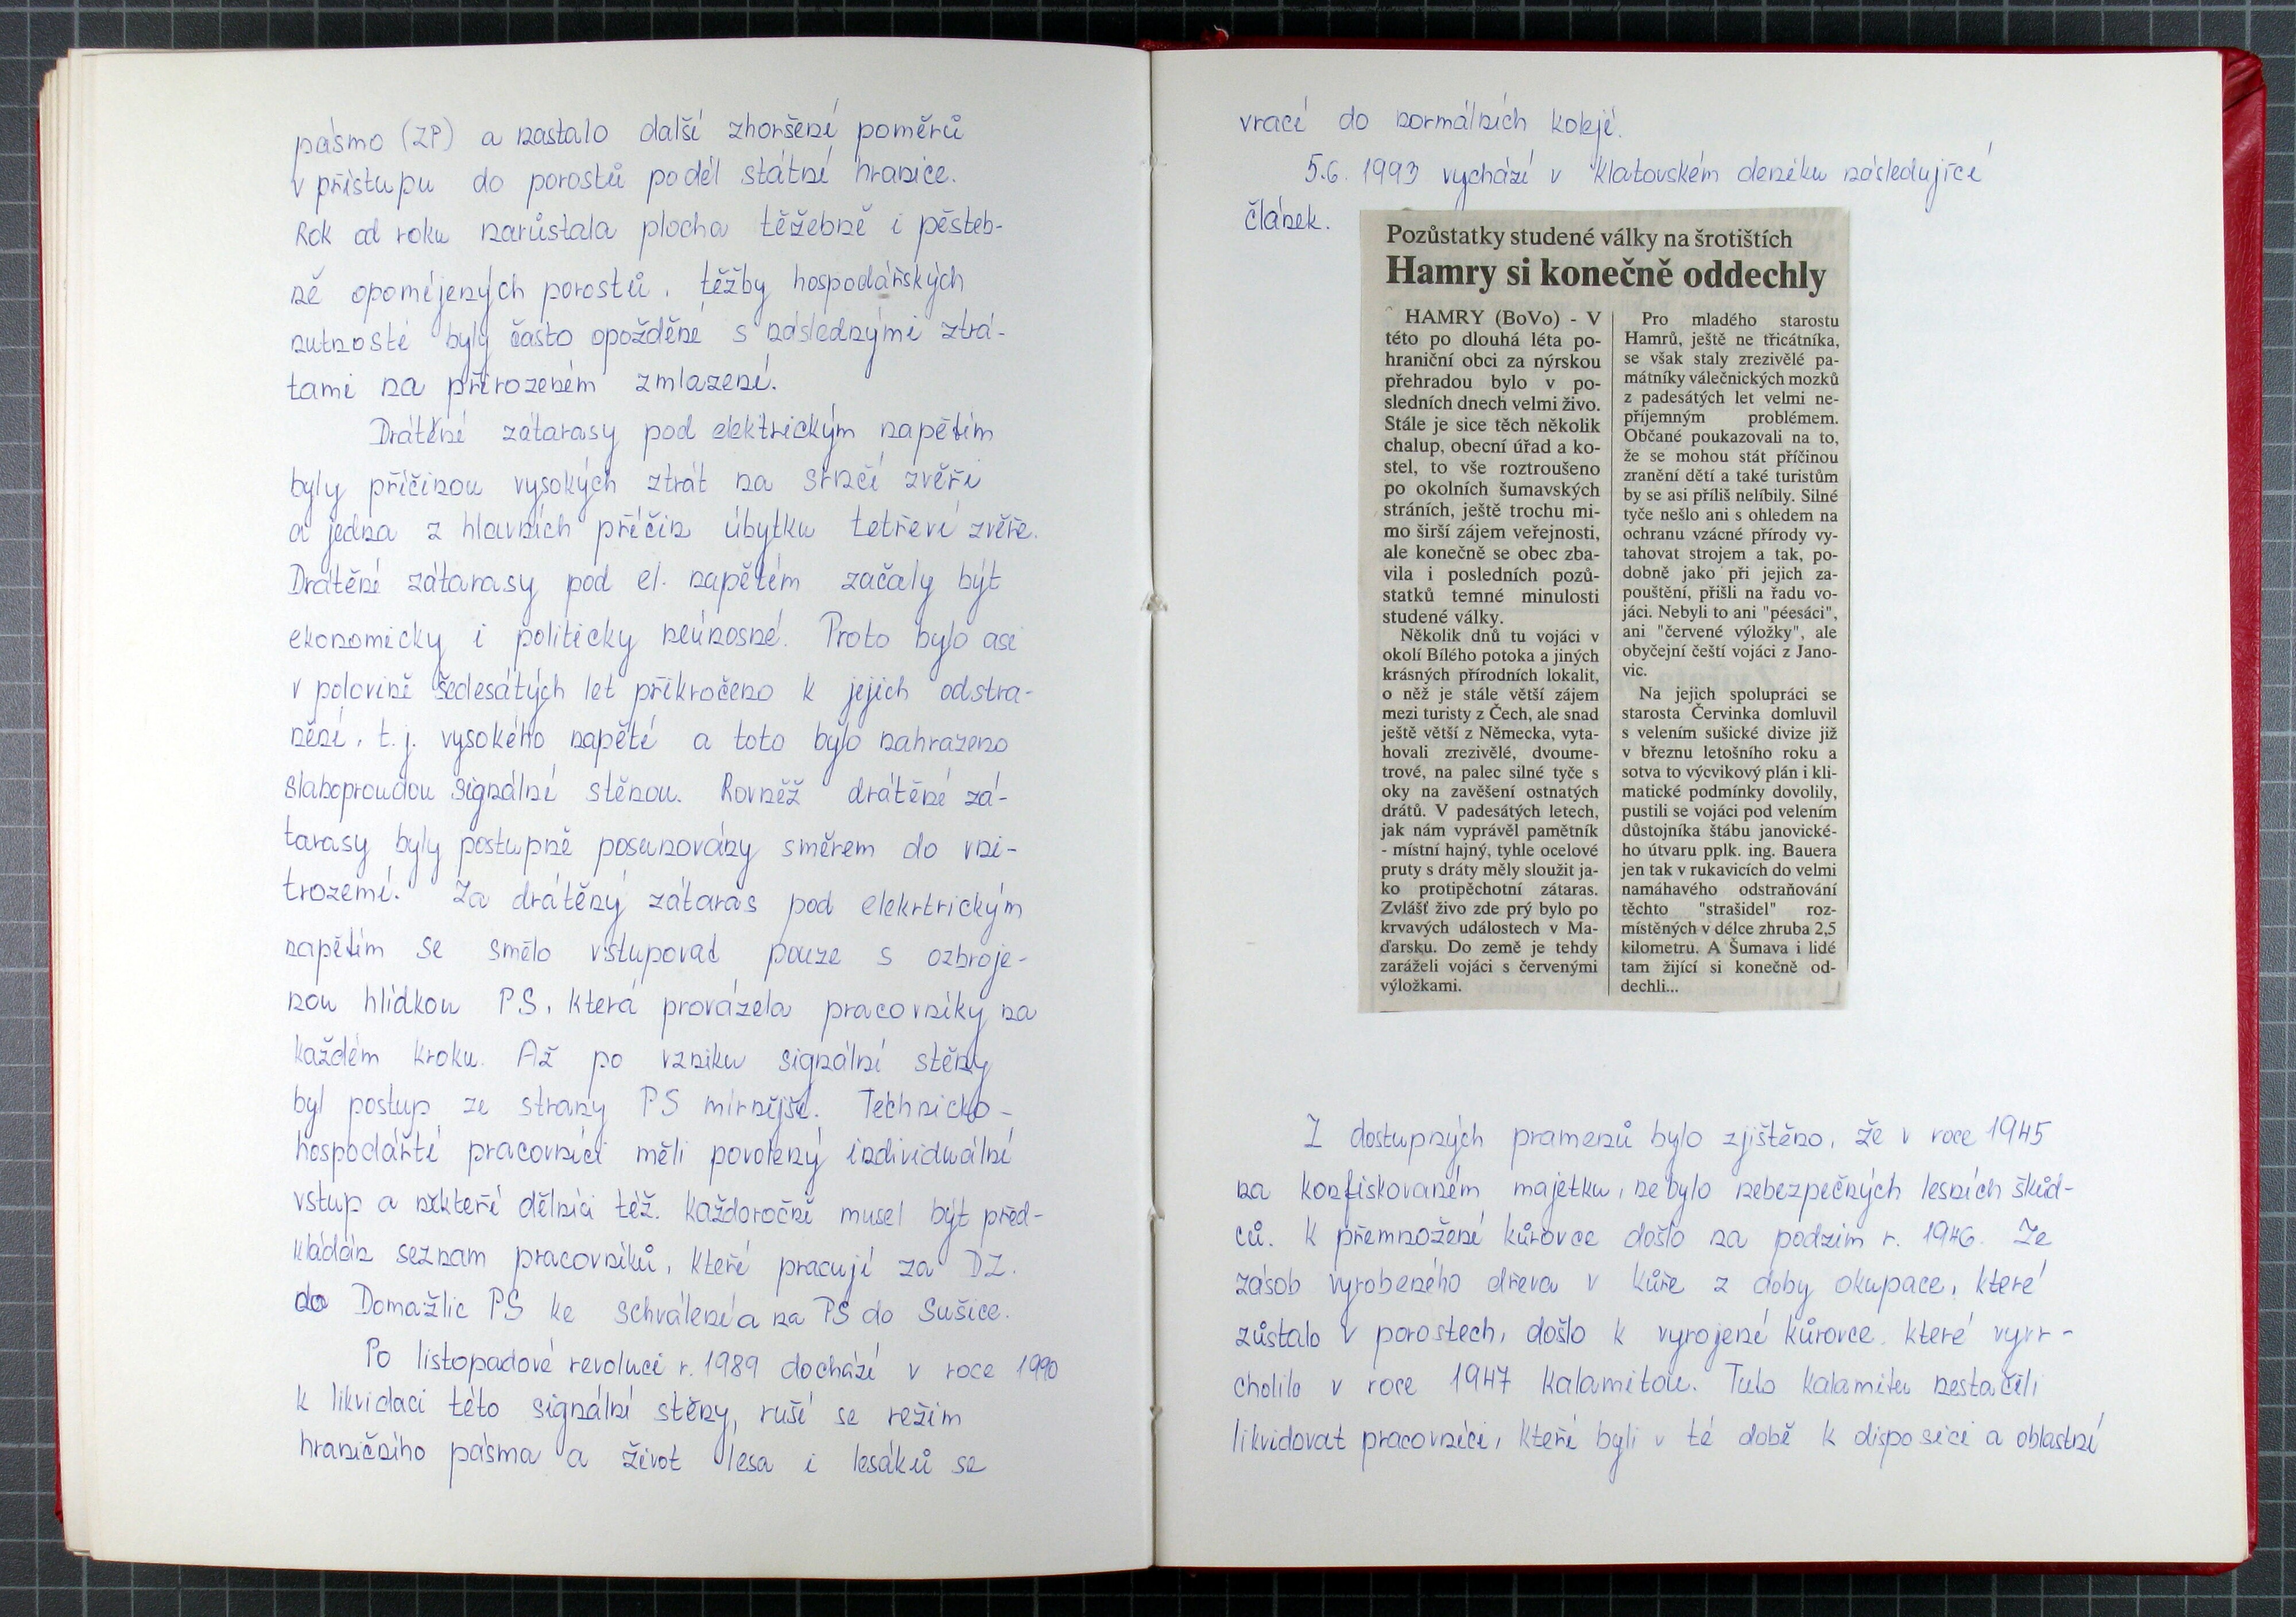 pásmo (ZP) a nastalo další zhoršení poměrů
v přístupu do porostů podél státní hranice.
Rok od roku narůstala plocha těžebně i pěsteb-
ně opomíjených porostů, těžby hospodářských
nutností byly často opožděné s následnými ztrá-
tami na přirozeném zmlazení.
Drátěné zátarasy pod elektrickým napětím
byly příčinou vysokých ztrát na srnčí zvěři
a jedna z hlavních příčin úbytku tetřeví zvěře.
Drátěné zátarasy pod el. napětím začaly být
ekonomicky i politicky neúnosné. Proto bylo asi
v polovině šedesátých let přikročeno k jejich odstra-
nění, t.j. vysokého napětí a toto bylo nahrazeno
slaboproudou signální stěnou. Rovněž drátěné zá-
tarasy byly postupně posunovány směrem do vni-
trozemí. Za drátěný zátaras pod elekrtrickým
napětím se smělo vstupovat pouze s ozbroje-
nou hlídkou PS, která provázela pracovníky na
každém kroku. Až po vzniku signální stěny
byl postup ze strany PS mírnější. Technicko-
hospodářtí pracovníci měli povolený individuální
vstup a někteří dělníci též. Každoročně musel být před-
kládán seznam pracovníků, kteří pracují za DZ.
do Domažlic PS ke schválení a na PS do Sušice.
Po listopadové revoluci r. 1989 dochází v roce 1990
k likvidaci této signální stěny, ruší se režim
hraničního pásma a život lesa i lesáků se
vrací do normálních kolejí.
5.6. 1993 vychází v Klatovském deníku následující
článek.
Pozůstatky studené války na šrotištích
Hamry si konečně oddechly
HAMRY (BoVo) - V
této po dlouhá léta po-
hraniční obci za nýrskou
přehradou bylo v po-
sledních dnech velmi živo.
Stále je sice těch několik
chalup, obecní úřad a ko-
stel, to vše roztroušeno
po okolních šumavských
stráních, ještě trochu mi-
mo širší zájem veřejnosti,
ale konečně se obec zba-
vila i posledních pozů-
statků temné minulosti
studené války.
Několik dnů tu vojáci v
okolí Bílého potoka a jiných
krásných přírodních lokalit,
o něž je stále větší zájem
mezi turisty z Čech, ale snad
ještě větší z Německa, vyta-
hovali zrezivělé, dvoume-
trové, na palec silné tyče s
oky na zavěšení ostnatých
drátů. V padesátých letech,
jak nám vyprávěl pamětník
- místní hajný, tyhle ocelové
pruty s dráty měly sloužit ja-
ko protipěchotní zátaras.
Zvlášť živo zde prý bylo po
krvavých událostech v Ma-
ďarsku. Do země je tehdy
zaráželi vojáci s červenými
výložkami.
Pro mladého starostu
Hamrů, ještě ne třicátníka,
se však staly zrezivělé pa-
mátníky válečnických mozků
z padesátých let velmi ne-
příjemným problémem.
Občané poukazovali na to,
že se mohou stát příčinou
zranění dětí a také turistům
by se asi příliš nelíbily. Silné
tyče nešlo ani s ohledem na
ochranu vzácné přírody vy-
tahovat strojem a tak, po-
dobně jako při jejich za-
pouštění, přišli na řadu vo-
jáci. Nebyli to ani "péesáci",
ani "červené výložky", ale
obyčejní čeští vojáci z Jano-
vic.
Na jejich spolupráci se
starosta Červinka domluvil
s velením sušické divize již
v březnu letošního roku a
sotva to výcvikový plán i kli-
matické podmínky dovolily,
pustili se vojáci pod velením
důstojníka štábu janovické-
ho útvaru pplk. ing. Bauera
jen tak v rukavicích do velmi
namáhavého odstraňování
těchto "strašidel" roz-
místěných v délce zhruba 2,5
kilometru. A Šumava i lidé
tam žijící si konečně od-
dechli...
Z dostupných pramenů bylo zjištěno, že v roce 1945
na konfiskovaném majetku, nebylo nebezpečných lesních škůd-
ců. K přemnožení kůrovce došlo na podzim r. 1946. Ze
zásob vyrobeného dřeva v kůře z doby okupace, které
zůstalo v porostech, došlo k vyrojení kůrovce, které vyvr-
cholilo v roce 1947 kalamitou. Tuto kalamitu nestačili
likvidovat pracovníci, kteří byli v té době k disposici a oblastní